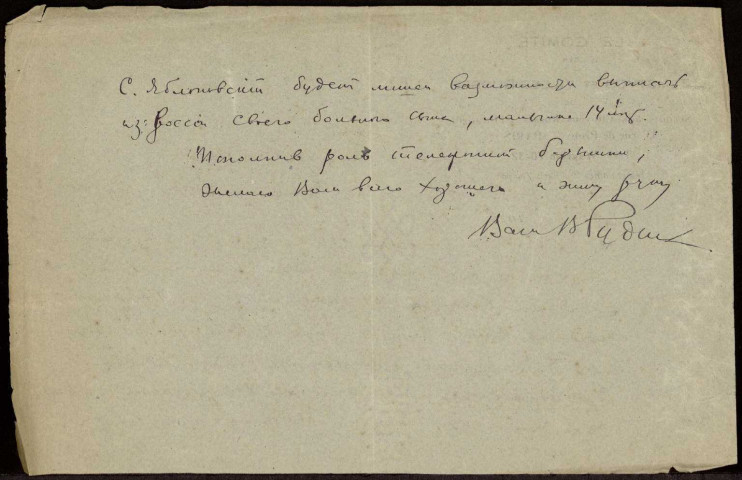 С. Яблоновскій будет лишен возможности выписать
из Россіи своего больного сына, мальчика 14 лет.
Исполнив роль телефонной барышни,
желаю Вам всего хорошего и жму руку
Ваш В Рудн